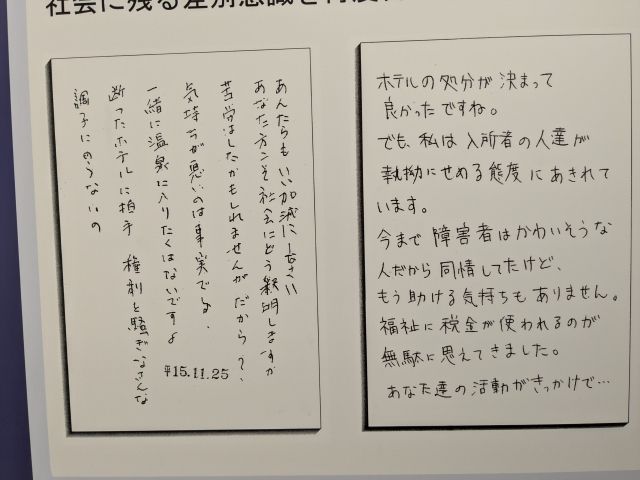 社会に残る差別意識を
あんたらもいい加減にしなさい
あなた方こそ社会にどう釈明しますか
苦労はしたかもしれませんが だから?、
気持ちが悪いのは事実でる、
一緒に温泉に入りたくはないですよ
断ったホテルに拍手 権利と騒ぎなさんな
調子にのらないの
平15.11.25
ホテルの処分が決まって
良かったですね。
でも、私は入所者の人達が
執拗にせめる態度にあきれて
います。
今まで障害者はかわいそうな
人だから同情してたけど、
もう助ける気持ちもありません。
福祉に税金が使われるのが
無駄に思えてきました。
あなた達の活動がきっかけで…